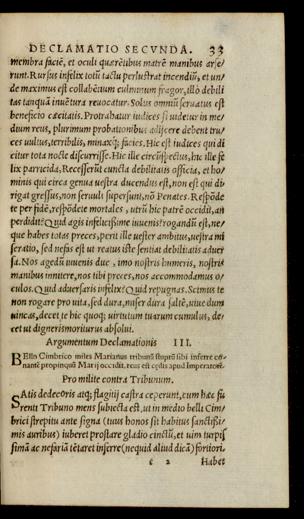 DECLAMATIO SECVNDA. 33
membra faciē, et oculi quærētibus matrē manibus arse/
runt. Rursus infelix totū tactu perlustrat incendiū, et un/
de maximus est collabentium culminum fragor, illò debili
tas tanquā inuētura reuocatur. Solus omniū seruatus est
beneficio cæcitatis. Protrahatur iudices si uidetur in me/
dium reus, plurimum probationibus adijcere debent tru/
ces uultus, terribilis, minaxq; facies. Hic est iudices qui di
citur tota nocte discurrisse. Hic ille circūspectus, hic ille fe
lix parricida. Recesserūt cuncta debilitatis officia, et ho/
minis qui circa genua uestra ducendus est, non est qui di/
rigat gressus, non seruuli supersunt, nō Penates. Respōde
te per fidē, respōdete mortales, utrū hic patrē occidit, an
perdidit? Quid agis infelicissime iuuenis? rogandū est, ne/
que habet totas preces, perit ille uester ambitus, uestra mi
seratio, sed nefas est ut reatus iste sentiat debilitatis aduer
sa. Nos agedū iuuenis duc, imo nostris humeris, nostris
manibus innitere, nos tibi preces, nos accommodamus o/
culos. Quid aduersaris infelix? Quid repugnas. Scimus te
non rogare pro uita, sed dura, miser dura saltē, uiue dum
uincas, decet te hic quoq; uirtutum tuarum cumulus, de/
cet ut dignerismoriturus absolui.
Argumentum Declamationis III.
BEllo Cimbrico miles Marianus tribunū stuprū sibi inferre co/
nantē propinquū Marij occidit, reus est cædis apud Imperatorē.
Pro milite contra Tribunum.
SAtis dedecoris atq; flagitij castra ceperunt, cum hæc fu
renti Tribuno mens subiecta est, ut in medio belli Cim/
brici strepitu ante signa (tuus honos sit habitus sanctissi/
mis auribus) iuberet prostare gladio cinctū, et uim turpis
simā ac nefariā tētaret inferre (nequid aliud dicā) fortiori.
e 2 Habet